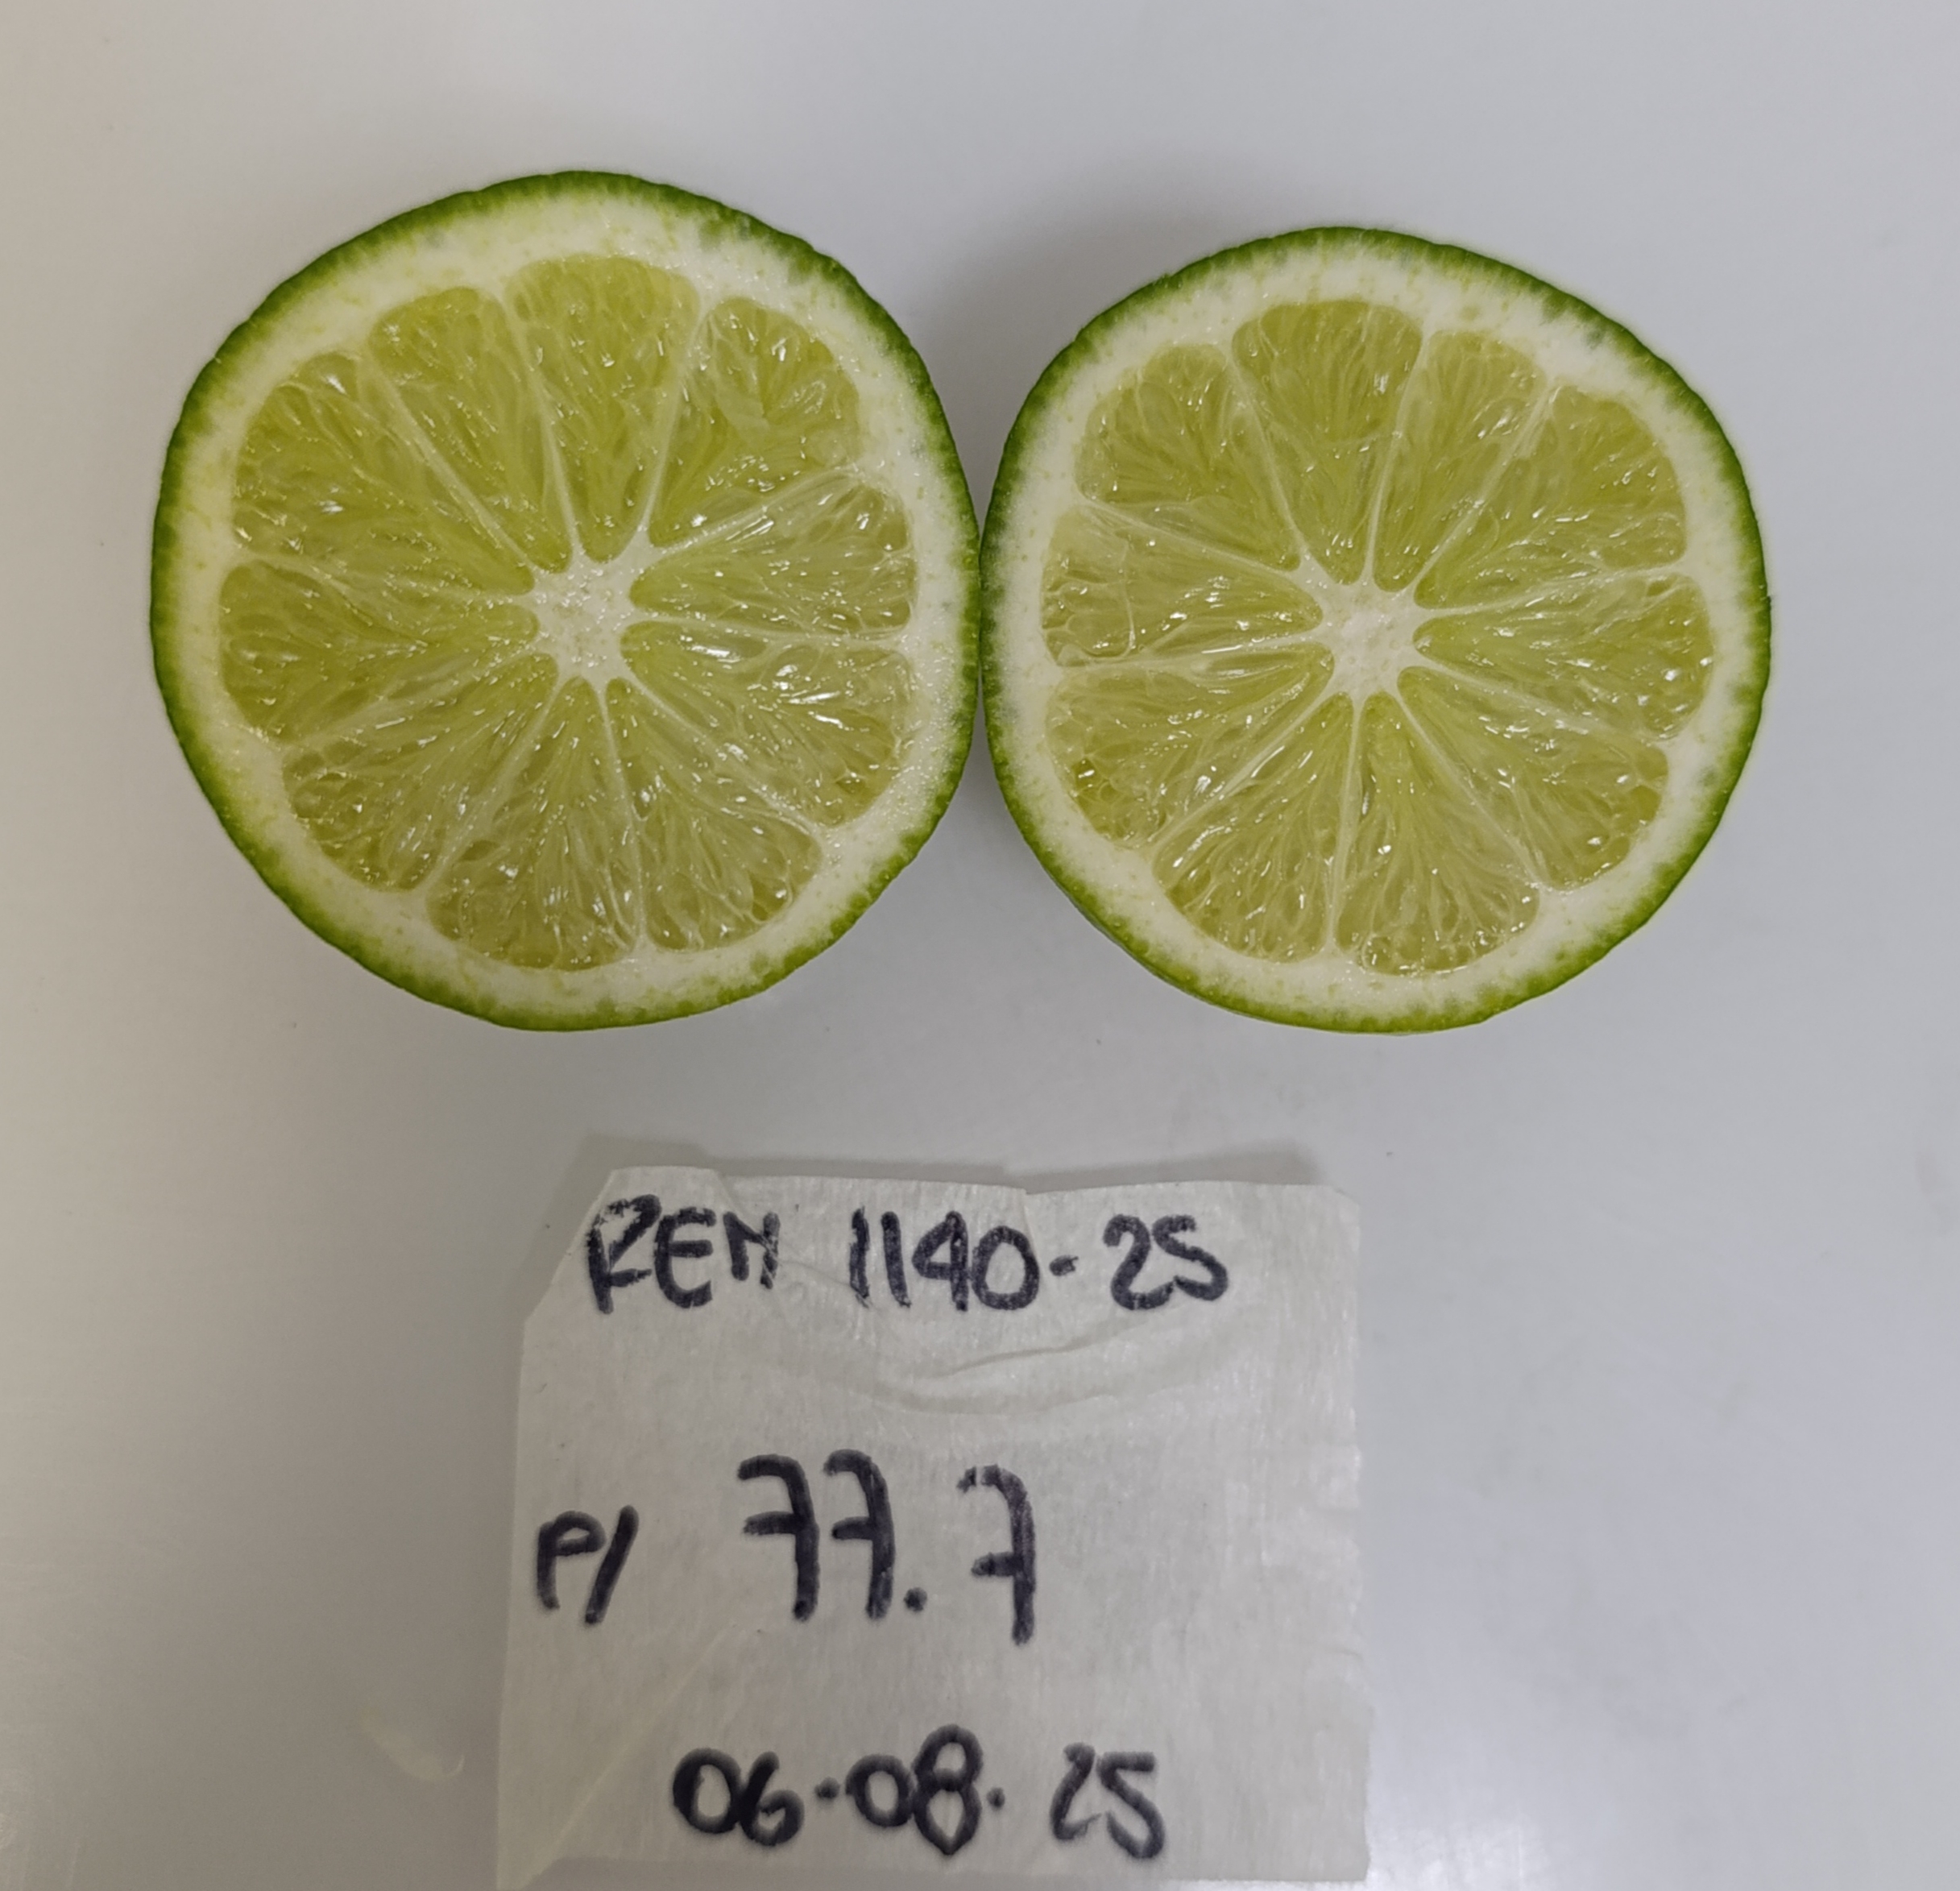 REM 1140-25
P/ 77.7
06-08-25